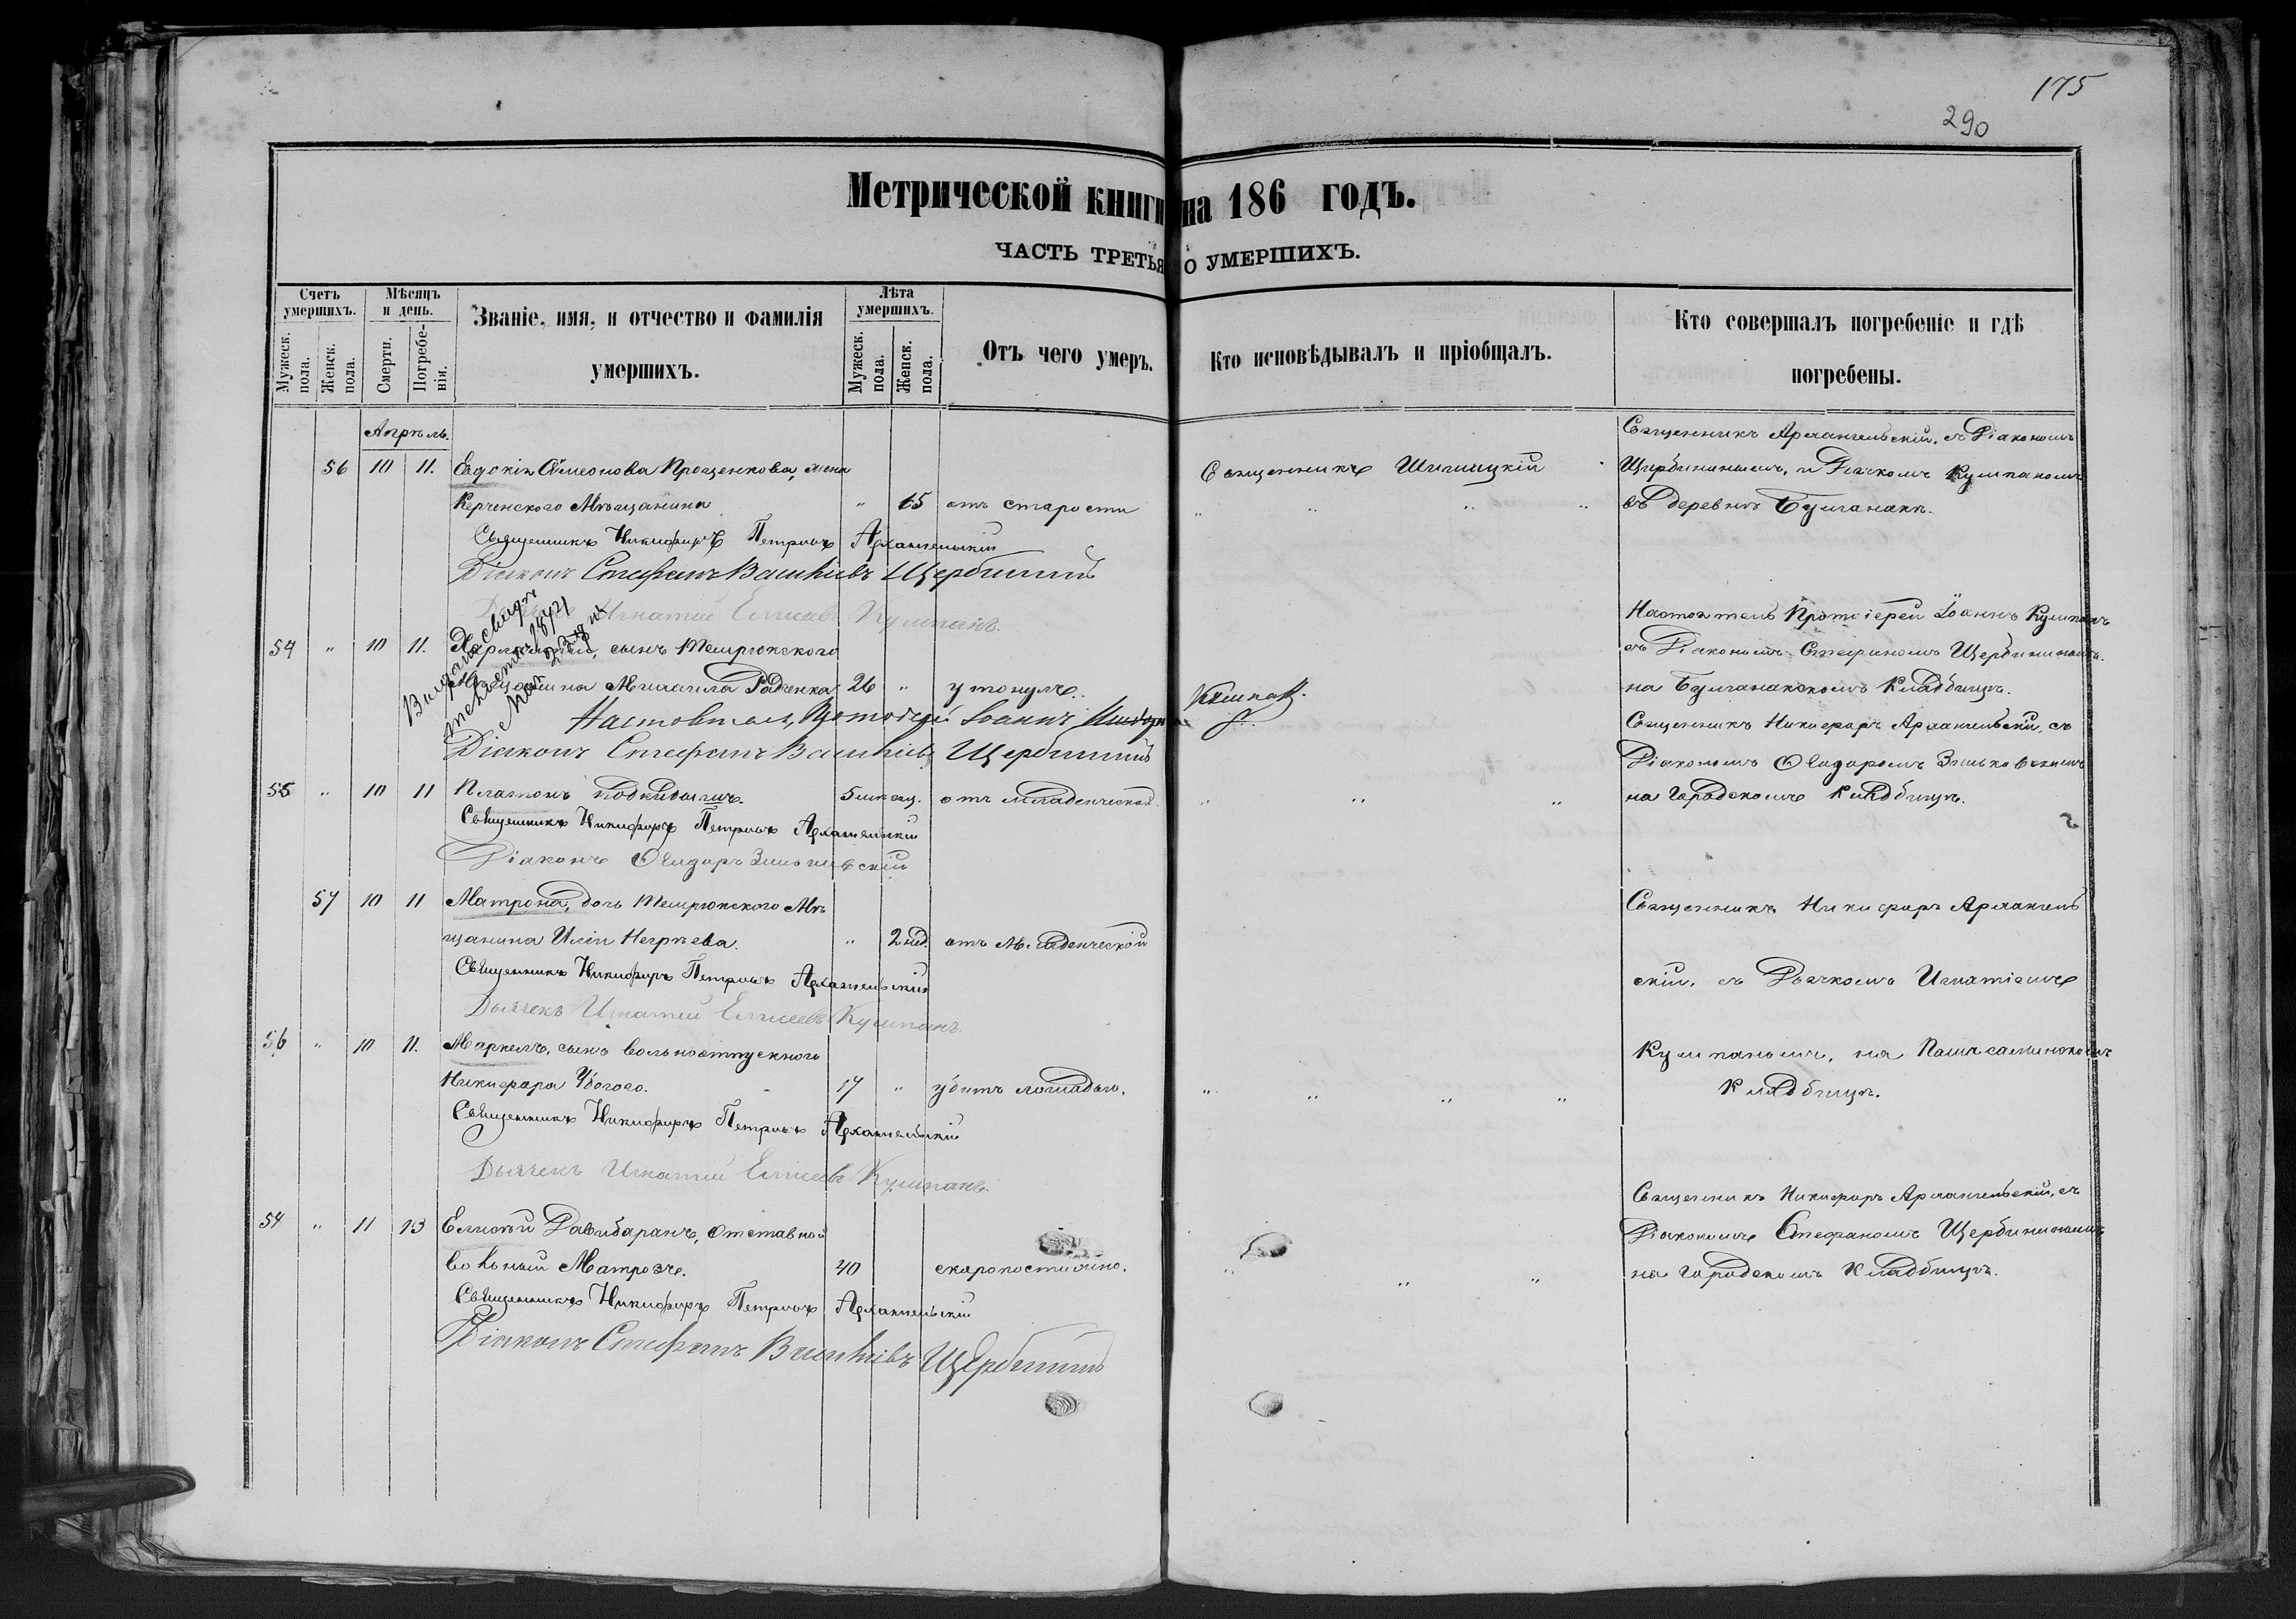 175
290
Метрической книги на 186 годъ.
ЧАСТЬ ТРЕТЬЯ О УМЕРШИХЪ.
Счетъ умершихъ.
Мужеск. пола.
Женск. пола.
Мѣсяцъ и день.
Смерти.
Погребенія.
Званіе, имя, и отчество и фамилія
умершихъ.
Лѣта умершихъ.
Мужеск. пола.
Женск. пола.
Отъ чего умеръ.
Кто исповѣдывалъ и пріобщалъ.
Кто совершалъ погребеніе и гдѣ
погребены.
Апрѣль.
Священникъ Архангельскій, съ Діакономъ
56 10 11. Евдокія Симеонова Прощенкова, жена Священникъ Щербининымъ, и Дьячкомъ Кушпаномъ
Керченского Мѣщанина " 65 отъ старости " " " " въ деревнѣ Булганакъ.
Священникъ Никифоръ Петровъ Архангельскій
Діаконъ Стефанъ Щербининъ
Игнатій Елисеевъ Кушпанъ.
Настоятель Протоіерей Іоаннъ Кушпанъ
54 " 10 11. сынъ Темрюкского съ Діакономъ Стефаномъ Щербининымъ.
Мѣщанина Михаила Радченка 26 " утонулъ. на Булганакскомъ Кладбищѣ.
Настоятель, Протоіерей Іоаннъ Кушпанъ.
Священникъ Никифоръ Архангельскій, съ
Діаконъ Стефанъ Щербининъ
Діакономъ Ѳеодоромъ Зиньковскимъ
55 " 10 11 Платонъ подкидышъ. 5 мѣсяц. отъ младенческой. " " " на Городскомъ Кладбищѣ.
Священникъ Никифоръ Петровъ Архангельскій
Діаконъ Ѳеодоръ Зиньковскій
57 10 11 Матрона, дочь Темрюкского Мѣ Священникъ Никифоръ Архангель
щанина Иліи Негрѣева. " 2 нед. отъ Младенческой
Священникъ Никифоръ Петровъ Архангельскій скій, съ Дьячкомъ Игнатіемъ
Дьячекъ Игнатій Елисеевъ Кушпанъ.
56 " 10 11. Маркелъ, сынъ вольноотпускного Кушпаномъ, на
Никифора Убогого. 17 " убитъ лошадью. " " " " Кладбищѣ.
Священникъ Никифоръ Петровъ Архангельскій
Дьячекъ Игнатій Елисеевъ Кушпанъ.
Священникъ Никифоръ Архангельскій, съ
57 " 11 13 Елисѣй отставной Діакономъ Стефаномъ Щербининымъ
вольный Матрозъ. 40 скоропостижно. " " " на Городскомъ Кладбищѣ.
Священникъ Никифоръ Петровъ Архангельскій
Діаконъ Стефанъ Щербининъ